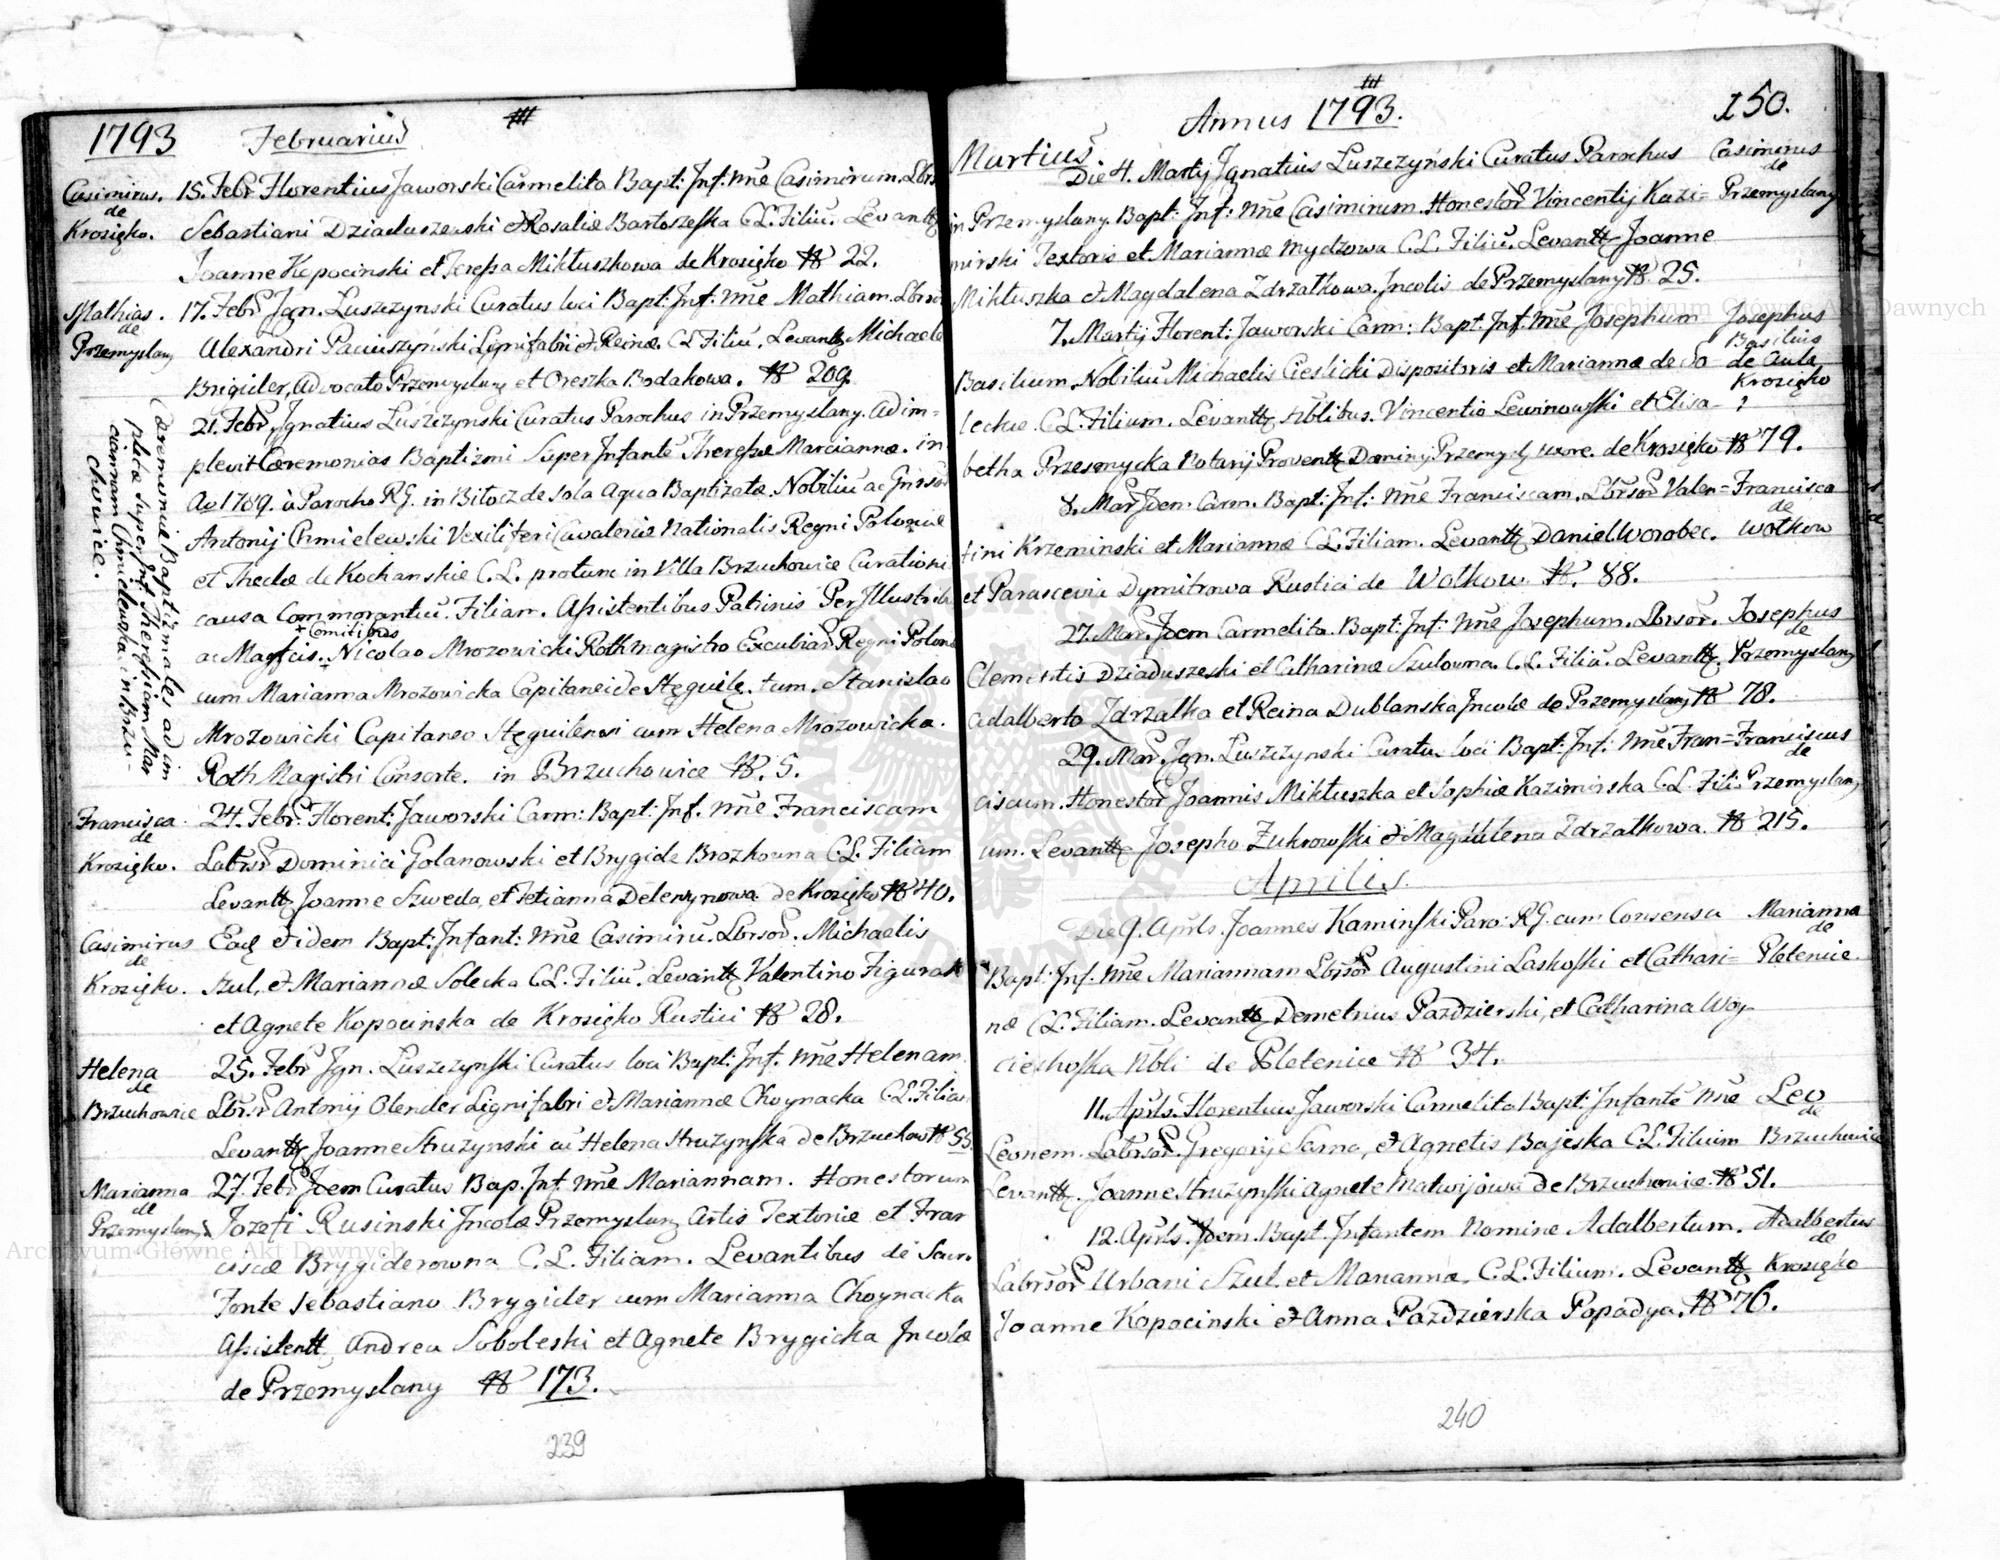 1793 Februarius
Casimirus. de Krosięko.
15. Febr Florentius Jaworski Carmelita Bapt: Inf: Nne Casimirum. Lbrs
Sebastiani Dziaduszewski et Rosaliæ Bartoszeska C.L. Filiū. Levantt
Joanne Kopocinski et Teressa Mikłuszkowa de Krosięko N 22.
Mathias. de Przemyslany
17. Febr Ign. Luszczynski Curatus loci Bapt: Inf: Nne Mathiam. Lbrso
Alexandri Paciuszyński Lignifabri et Reinæ. C L Filiū. Levantt Michaele
Brigider, Advocato Przemyslany et Oreszka Bodakowa. N 209.
Cæremoniæ Baptismales ad im
pletæ super Inf: Theressiam Mar
ciannam Chmielewska in Brzu-
chowice.
21. Febr Ignatius Luszczynski Curatus Parochus in Przemyslany. Ad im=
plevit Cæremonias Baptizmi Super Infante Theressæ Marciannæ. in
Ao 1789. à Parocho RG. in Biłocz de sola Aqua Baptizatæ. Nobiliū ac Gnrso
Antonij Chmielewski Vexiliferi Cavaleriæ Nationalis Regni Poloniæ
et Theclæ de Kochanskie C.L. protunc in Villa Brzuchowice Curationi
causa Commorantiū. Filiam. Assistentibus Patrinis Per Illustrib
+ Comitibus
ac Magfcis. + Nicolao Mrozowicki Rothmagistro Excubiar Regni Polon
cum Marianna Mrozowicka Capitaneide Stęguilę. tum. Stanislao
Mrozowicki Capitaneo Stęguilensi cum Helena Mrozowicka.
Roth Magistri Consorte. in Brzuchowice N. 5.
Francisca. de Krosięko.
24. Febr: Florent: Jaworski Carm: Bapt: Inf. Nne Franciscam
Labrsr Dominici Golanowski et Brygide Brozkowna C.L. Filiam
Levantt Joanne Szweda, et Tetianna Delenynowa de Krosięko N 40.
Casimirus de Krosięko.
Eaq et idem Bapt: Infant: Nne Casimirū. Lbrsor. Michaelis
Szul, et Mariannæ Solecka C.L. Filiū. Levantt Valentino Figurak
et Agnete Kopocinska de Krosięko Rustici N 28.
Helena de Brzuchowice
25. Febr Ign. Luszczynski Curatus loci Bapt: Inf. Nne Helenam.
Lbrsr Antonij Olender Lignifabri et Mariannæ Choynacka C.L. Filiam
Levantt Joanne Struzynski cū Helena Struzynska de Brzuchow N 55.
Marianna de Przemyslany
27. Febr Idem Curatus Bap. Inf. Nne Mariannam. Honestorum
Jozefi Rusinski Incolæ Przemyslany Artis Textoriæ et Fran
ciscæ Brygiderowna C.L. Filiam. Levantibus de Sacr.
Fonte Sebastiano Brygider cum Marianna Choynacka
Assistentt, Andrea Soboleski et Agnete Brygicka Incolæ
de Przemyslany N 173.
239
Annus 1793.
150.
Martius
Die 4. Martij Ignatius Luszczyński Curatus Parochus
Casimirus de Przemyslany
in Przemyslany. Bapt: Inf: Nne Casimirum. Honestor Vincentij Kazi=
mirski Textoris et Mariannæ Mydzowa C.L. Filiū. Levantt Joanne
Mikłuszka et Magdalena Zdrzałkowa. Incolis de Przemyslany N. 25.
7. Martij Florent: Jaworski Carm: Bapt: Inf: Nne Josephum
Josephus Basilius de Aula Krosięko
Basilium. Nobiliū Michaelis Cieslicki Dispositoris et Mariannæ de So-
leckie C.L. Filium. Levantt Nblibus. Vincentio Lewinowski et Elisa-
betha Przesmycka Notarij Provent Dominij Przemysl uxore. de Krosięko N 79.
8. Mar Idem Carm. Bapt: Inf: Nne Franciscam. Lbrsor Valen=
Francisca de Wołkow
tini Krzeminski et Mariannæ C.L. Filiam. Levantt Daniel Worobec.
et Parascevia Dymitrowa Rustici de Wołkow N. 88.
27. Mar. Idem Carmelita. Bapt: Inf: Nne Josephum. Lbrsor.
Josephus de Przemyslany
Clementis Dziaduszeski et Catharinæ Szulowna. C.L. Filiū. Levantt
Adalberto Zdrzałka et Reina Dublanska Incolæ de Przemyslany N 78.
29. Mar. Ign. Luszczynski Curatus loci Bapt: Inf: Nne Fran=
Franciscus de Przemyslany
ciscum. Honestor Joannis Mikłuszka et Sophiæ Kazimirska C.L. Fili-
um. Levantt Josepho Zukrowski et Magdalena Zdrzałkowa. N 215.
Aprilis.
Die 9. Aprls. Joannes Kaminski Paro: RG. cum Consensu
Marianna de Pletenice.
Bapt: Inf. Nne Mariannam Lbrsor Augustini Laskoski et Cathari=
næ C.L. Filiam. Levantt Demetrius Pazdzierski, et Catharina Woy
ciechoska Nbli de Pletenice N 34.
11. Aprls. Florentius Jaworski Carmelita Bapt: Infantē Nne
Leo de Brzuchowice
Leonem. Labrsor. Gregorij Sarna, et Agnetis Bajeska C.L. Filium
Levantt. Joanne Struzynski Agnete Matwijowa de Brzuchowice. N 51.
12. Aprls. Idem. Bapt. Infantem Nomine Adalbertum.
Adalbertus de Krosięko
Labrsor Urbani Szul. et Mariannæ. C.L. Filium. Levantt
Joanne Kopocinski et Anna Pazdzierska Popadya. N 76.
240
Archiwum Główne Akt Dawnych
Archiwum Główne Akt Dawnych